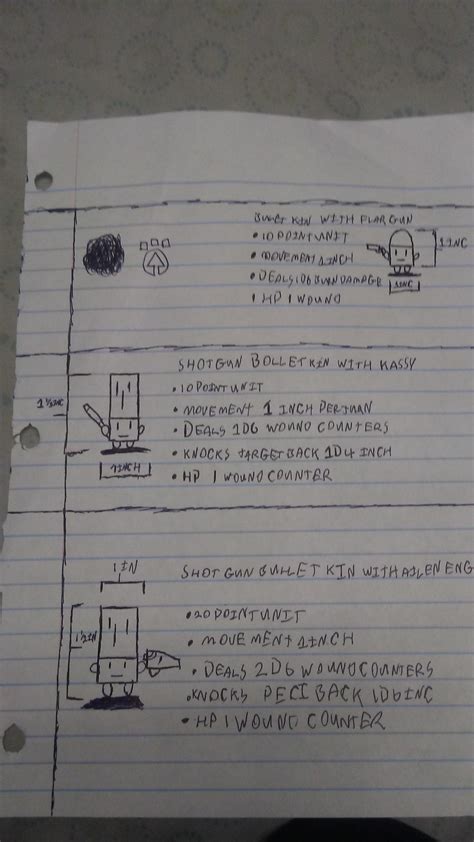 BULLET KIN WITH FLARGUN
• 10 POINT UNIT
• MOVEMENT 1INCH
• DEALS 1D6 BURN DAMAGE
• 1 HP 1 WOUND
1 INC
1INC
SHOTGUN BOLLET KIN WITH KASSY
• 10 POINT UNIT
• MOVEMENT 1 INCH PERTUAN
• DEALS 1D6 WOUND COUNTERS
• KNOCKS TARGET BACK 1D4 INCH
• HP 1 WOUND COUNTER
1 ½ INC
1INCH
SHOTGUN BULLET KIN WITH AILEN ENG
• 20 POINT UNIT
• MOVEMENT 1INCH
• DEALS 2D6 WOUND COUNTERS
• KNOCKS PECI BACK 1D6 INC
• HP 1 WOUND COUNTER
1 IN
1 ½ IN